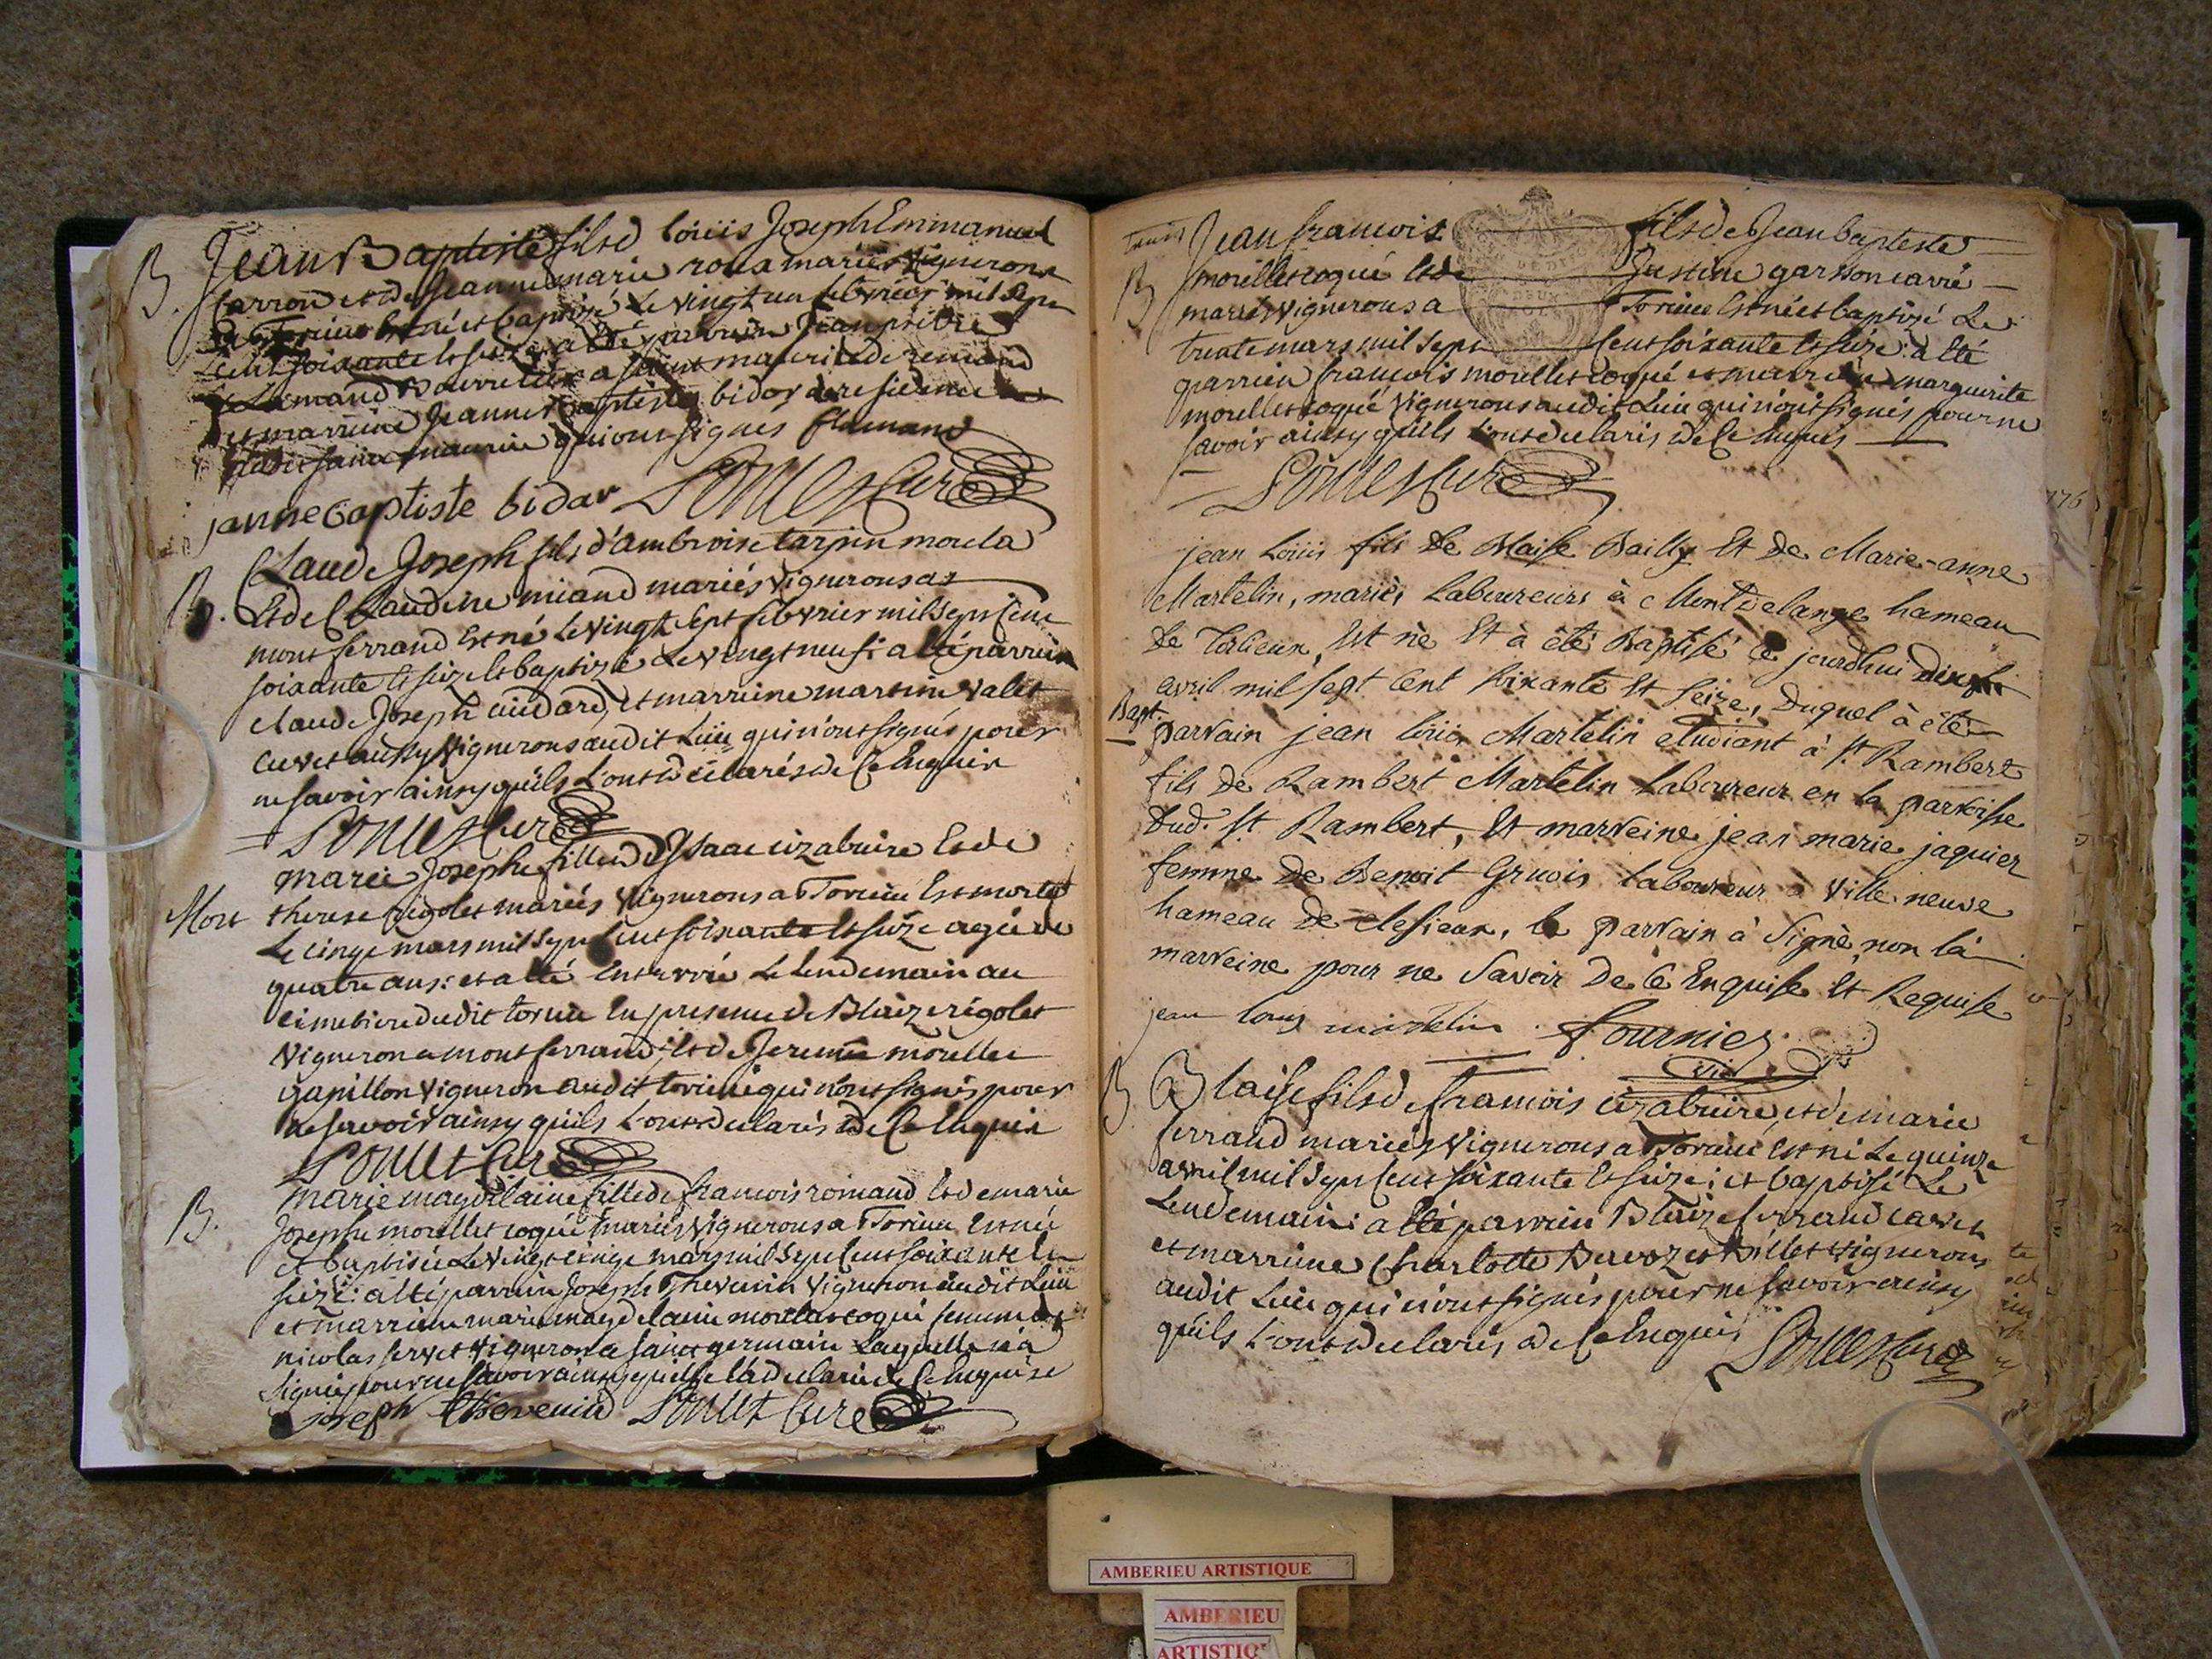 B. Jean Baptiste fils de loüis Joseph Emmanuel
Carron et de Jeanne marie roux mariés Vignerons
a Torcieu Est né et baptisé Le vingt un febvrier mil Sept
Cent soixante Et seize a Eté parrain Jean
flamand a saint maurice de remand
et marraine Jeanne Baptiste bidor de residence
audit saint maurice qui ont signés flamand
janne baptiste bidar Curé
B. Claude Joseph fils d'ambroise tarpin moula
Et de Claudine miand mariés Vignerons a
mont ferrand Est né Le vingt Sept febvrier mil Sept Cent
soixante Et seize Et baptizé Le vingt neuf: a Eté parrain
claude Joseph et marraine martine Valet
cuvet aussy Vignerons audit Lieu qui n'ont signés pour
ne savoir ainsy qu'ils L'ont déclarés de Ce Enquis
Curé
marie Josephe fille d'Isaac cizabuire Et de
Mort therese rigolet mariés Vignerons a Torcieu Est morte
Le cinq mars mil Sept Cent soixante Et seize agée de
quatre ans: et a Eté Enterrée Le Lendemain au
cimetiere dudit torcieu En presence de Blaize rigolet
Vigneron a mont ferrand, Et de Jeremie morellet
papillon Vigneron audit torcieu qui n'ont signés pour
ne savoir ainsy qu'ils L'ont déclarés de Ce Enquis
Curé
B. marie magdelaine fille de francois roimand Et de marie
Josephe morellet coqué mariés Vignerons a Torcieu Est née
et baptisée Le Vingt cinq mars mil Sept Cent soixante Et
seize: a Eté parrain Joseph Thevenin Vigneron audit Lieu
et marraine marie magdelaine morellet coqué femme de
nicolas servet Vigneron a saint germain Laquelle n'a
signé pour ne savoir ainsy qu'elle L'a déclaré de Ce Enquise
joseph thevenin Curé
Jean francois fils de Jean baptiste
B morellet coqué Et de Justine garsson carré
mariés Vignerons a Torcieu Est né et baptizé Le
trente mars mil Sept Cent soixante Et seize: a Eté
parrain francois morellet coqué et marraine marguerite
morellet coqué Vignerons audit Lieu qui n'ont signés pour ne
savoir ainsy qu'ils L'ont déclarés de Ce Enquis
Curé
jean Loüis fils de Blaise Bailly Et de Marie-anne
Martelin, mariés Laboureurs à Montdelange hameau
de Est né Et à été Baptisé ce jourdhui
avril mil sept cent soixante Et seize, Duquel à été
Bapt. parrain jean loüis Martelin etudiant à St. Rambert
fils de Rambert Martelin Laboureur en la parroisse
dud. St. Rambert, Et marreine jean marie jaquier
femme de Benoit Gruois laboureur à Ville neuve
hameau de clesieux, le parrain à Signé, non la
marreine pour ne Savoir De Ce Enquise Et Requise
jean louis martelin fournier
vic
B Blaise fils de francois cizabuire et de marie
ferrand mariés Vignerons a Torcieu Est né Le quinze
avril mil Sept Cent soixante Et seize: et baptisé Le
Lendemain: a Eté parrain Blaize ferrand
et marraine Charlotte Vignerons
audit Lieu qui n'ont signés pour ne savoir ainsy
qu'ils L'ont déclarés de Ce Enquis Curé
AMBERIEU ARTISTIQUE
AMBERIEU
ARTISTIQ